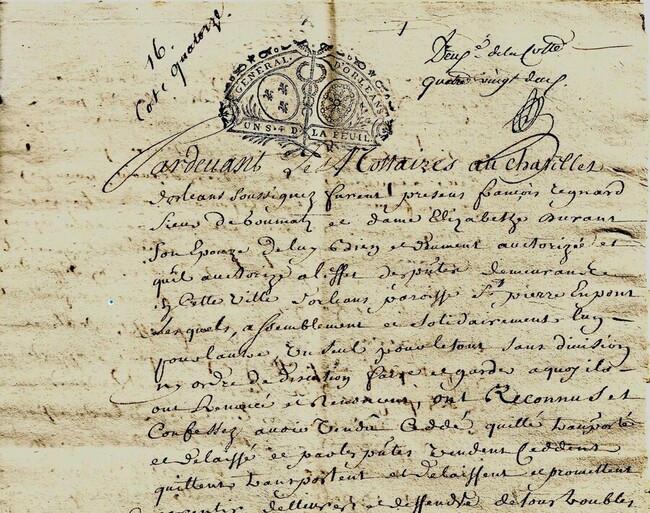 16.
Cote quatorze
1
Deux.e de la Cotte
quatre vingt deux
GENERAL. D'ORLEANS
UN S. + D. LA FEUIL
Pardevant Les Nottaires au chatellet
dorleans soussignez furent presens françois regnard
sieur de et dame Elizabethe Durant
son Epouze de luy bien et duement auctorizée et
quil auctorize a leffet des pntes demeurans
en Cette Ville dorleans paroisse St pierre Enpont
Lesquels, assemblement et solidairement lun
pour lautre, un seul pour le tout sans division
ny ordre de discution faire et garder a quoy ils
ont Renoncé et Renoncent, ont Reconnus et
Confessez avoir Vendu Ceddé, quitté transporté
et delaissé et par les pntes vendent Ceddent
quittent transportent et delaissent et promettent
garentir dellivrer et deffendre de tous troubles